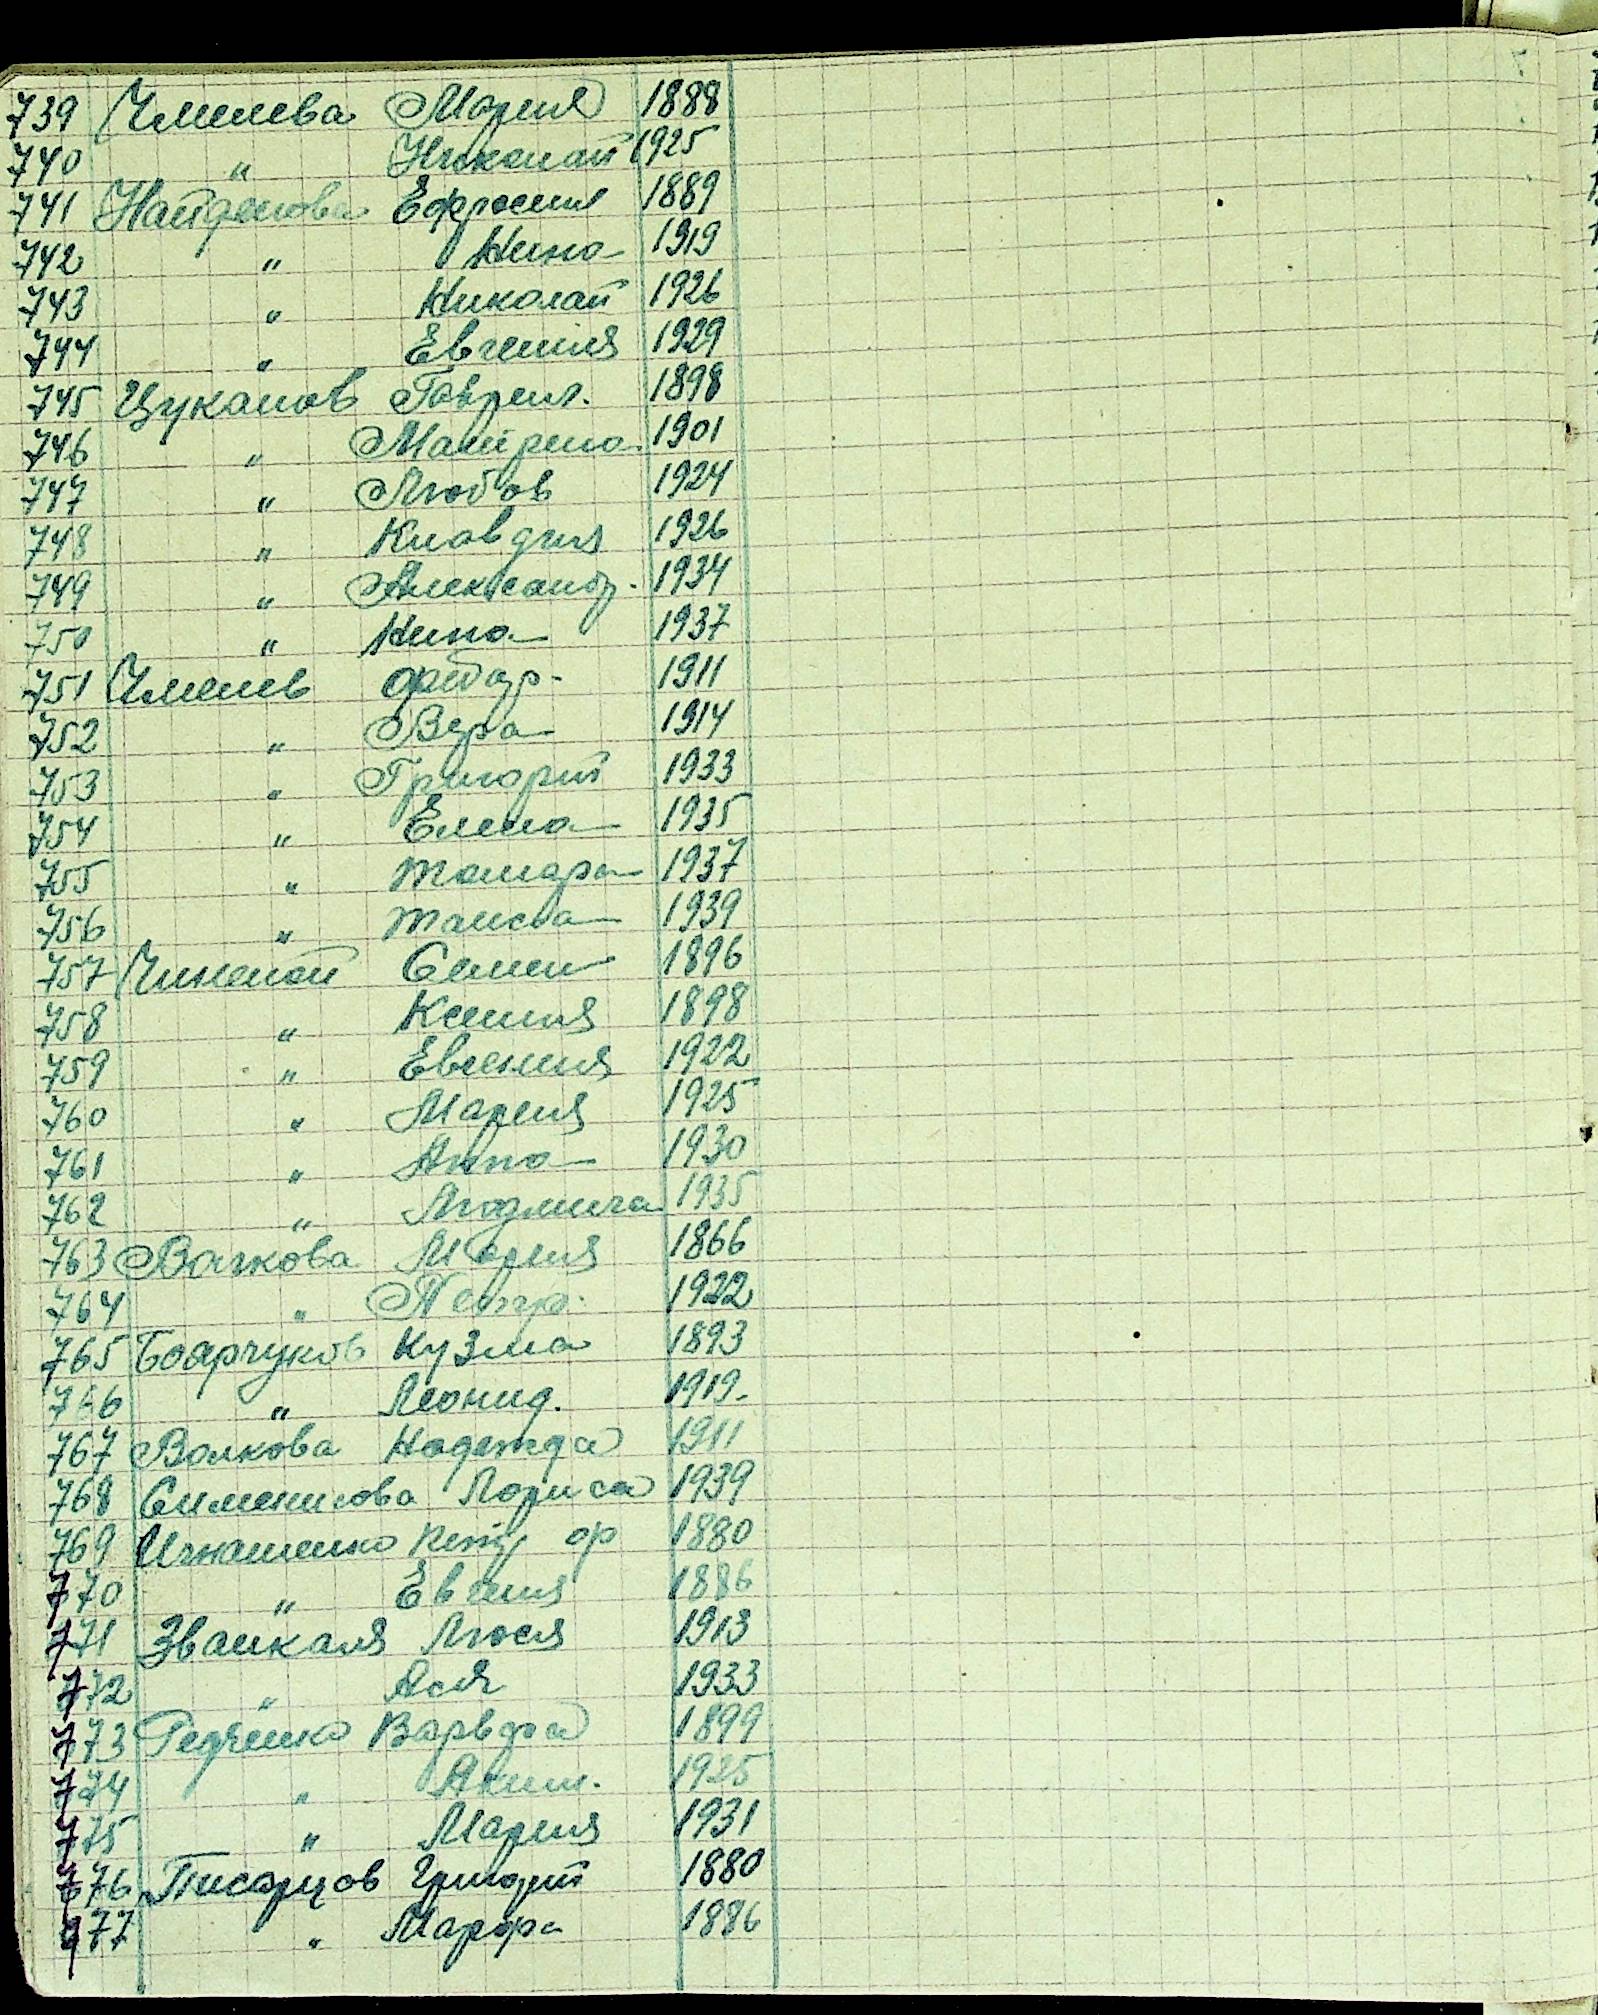 739 Чмелева Мария 1888
740 " Николай 1925
741 Найденова Ефросиния 1889
742 " Нина 1919
743 " Николай 1926
744 " Евгения 1929
745 Цуканов Гаврил. 1898
746 " Матрена 1901
747 " Любов 1924
748 " Клавдия 1926
749 " Александр. 1934
750 " Нина 1937
751 Чмелев 1911
752 " Вера 1914
753 " Григорий 1933
754 " Елена 1935
755 " Тамара 1937
756 " Таиса 1939
757 Семен 1896
758 " Ксения 1898
759 " Евгения 1922
760 " Мария 1925
761 " Анна 1930
762 " Людмила 1935
763 Волкова Мария 1866
764 " Петр. 1922
765 Боярчуков Кузма 1893
766 " Леонид. 1919.
767 Волкова Надежда 1911
768 Лориса 1939
769 Игнатенко 1880
770 " Евгения 1886
771 Люся 1913
772 " Ася 1933
773 Редченко Варвара 1899
774 " Аким. 1925
775 " Мария 1931
776 Писарцов Григорий 1880
777 " Марфа 1886